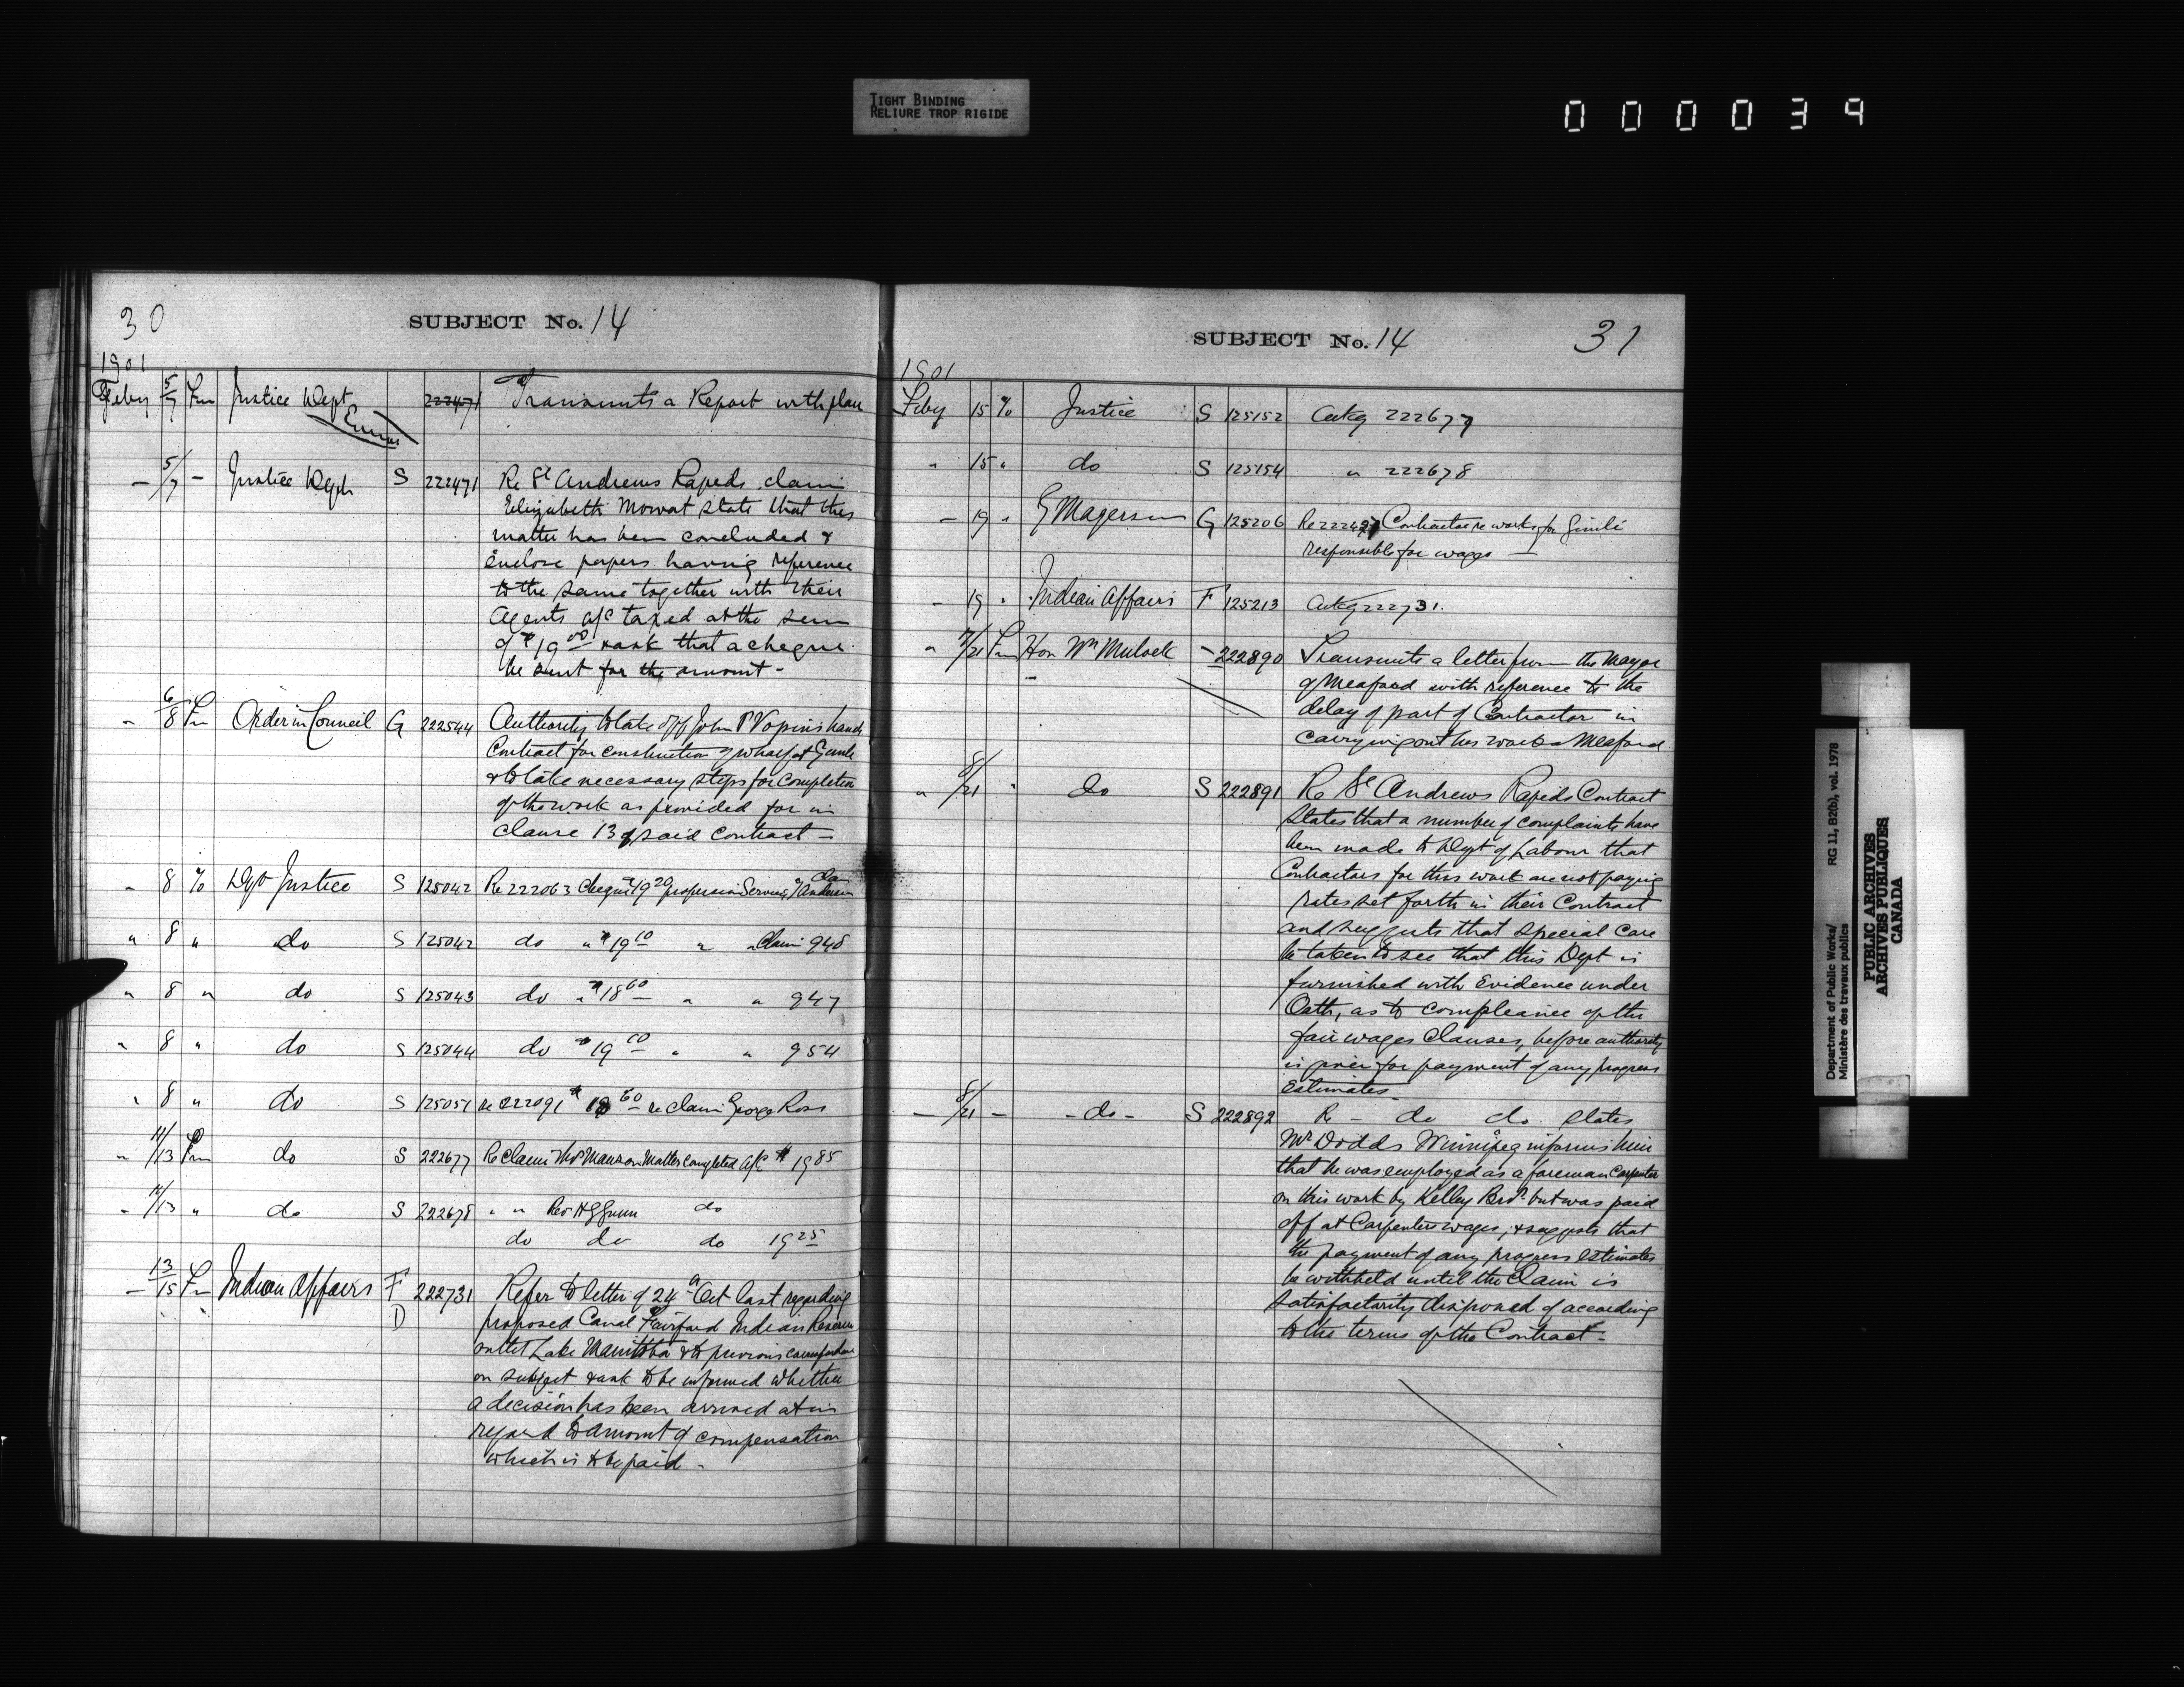 TIGHT BINDING
RELIURE TROP RIGIDE
000039
30
SUBJECT No. 14
1901
Feby 5/7 Fm Justice Dept 222471 Transmits a Report with plan
Error
— 5/7 — Justice Dept S 222471 Re St Andrews Rapids claim
Elizabeth Mowat state that this
matter has been concluded &
enclose papers having reference
to the same together with their
Agents a/c taxed at the sum
of $19 00 & ask that a cheque
be sent for the amount -
" 6/8 Fm Order in Council G 222544 Authority to take off John P Vopnis hands
Contract for construction of wharf at Gimli
& to take necessary steps for completion
of the work as provided for in
Clause 13 of said contract —
" 8 To Dept Justice S 125042 Re 222063 Cheque $19 20 profession Services, Claim Anderson
" 8 " do S 125042 do " $19 10 " " Claim 948
" 8 " do S 125043 do " $18 60 " " 947
" 8 " do S 125044 do $19 60 " " 954
" 8 " do S 125051 re 222091 $18 60 re claim George Ross
" 11/13 Fm do S 222677 Re Claim Thos Manson Matter completed a/c $19 85
" 12/13 " do S 222678 " " Rev H G Gunn do
do do do 19 25
— 13/15 Fm Indian Affairs F 222731 Refer to letter of 24th Oct last regarding
D proposed Canal Fairford Indian Reserve
outlet Lake Manitoba & to previous correspondence
on subject & ask to be informed whether
a decision has been arrived at in
regard to amount of compensation
which is to be paid -
SUBJECT No. 14
31
1901
Feby 15 To Justice S 125152 Ackg 222677
" 15 " do S 125154 " 222678
— 19 " G Magerson G 125206 Re 222497 Contractor re works for Gimli
responsible for wages —
— 19 " Indian Affairs F 125213 Ackg 222731.
" 7/21 Fm Hon Wm Mulock - 222890 Transmits a letter from the Mayor
of Meaford with reference to the
delay of part of Contractor in
carrying out his work - Meaford
" 8/21 " do S 222891 Re St Andrews Rapids Contract
states that a number of complaints have
been made to Dept of Labour that
Contractors for this work are not paying
rates set forth in their Contract
and suggests that special care
be taken to see that this Dept is
furnished with Evidence under
Oath, as to compliance of the
fair wages Clauses, before authority
is given for payment of any progress
estimates
— 8/21 — - do - S 222892 Re - do do. states
Mr Dodds Winnipeg informs him
that he was employed as a foreman Carpenter
on this work by Kelley Bros but was paid
off at Carpenters wages, & suggests that
the payment of any progress estimates
be withheld until the Claim is
satisfactorily disposed of according
to the terms of the Contract -
Department of Public Works/ RG 11, B2(b), vol. 1978
Ministère des travaux publics
PUBLIC ARCHIVES
ARCHIVES PUBLIQUES
CANADA